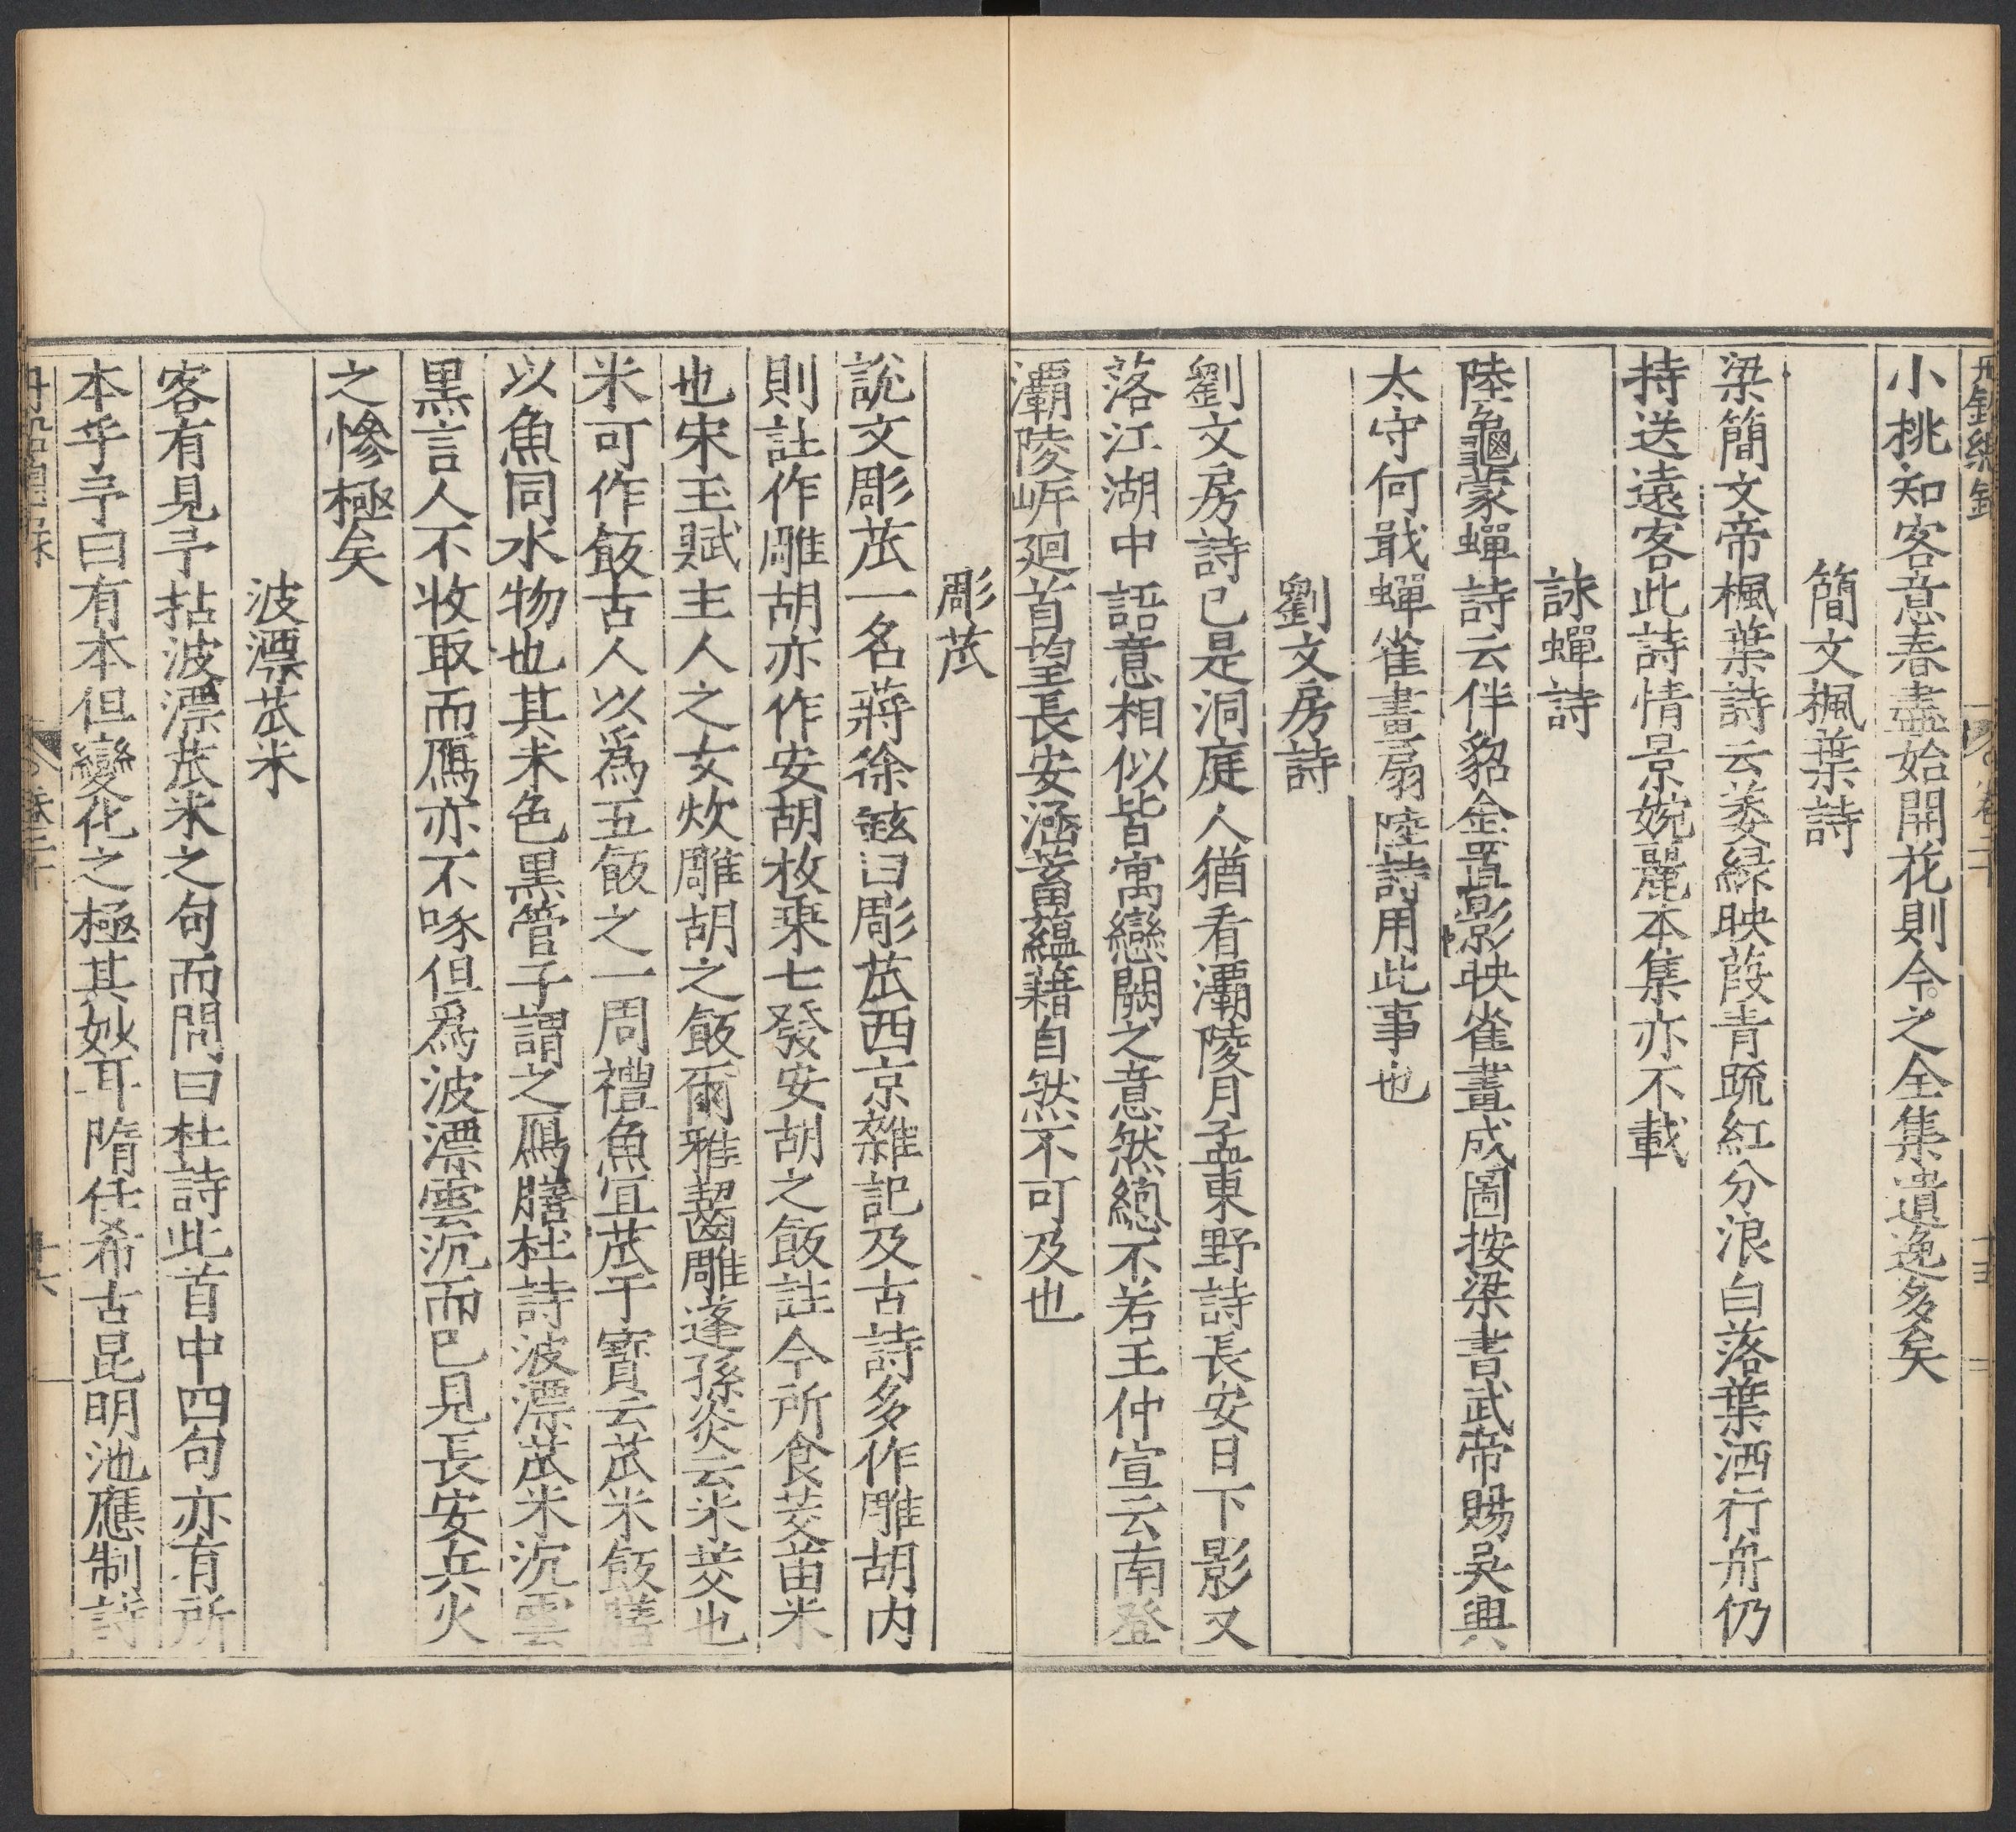 丹鉛總錄
卷二十
十五
小桃知客意春盡始開花則今之全集遺逸多矣
簡文楓葉詩
梁簡文帝楓葉詩云萎綠映葭青疏紅分浪白落葉洒行舟仍
持送遠客此詩情景婉麗本集亦不載
詠蟬詩
陸龜蒙蟬詩云伴貂金置影映雀畫成圖按梁書武帝賜吳興
太守何戢蟬雀畫扇陸詩用此事也
劉文房詩
劉文房詩已是洞庭人猶看灞陵月孟東野詩長安日下影又
落江湖中語意相似皆寓戀闕之意然總不若王仲宣云南登
灞陵岸廻首望長安涵蓄蘊藉自然不可及也
彫苽
說文彫苽一名蔣徐鉉曰彫苽西京雜記及古詩多作雕胡内
則註作雕胡亦作安胡枚乗七發安胡之飯註今所食茭苗米
也宋玉賦主人之女炊雕胡之飯爾雅齧雕蓬孫炎云米茭也
米可作飯古人以爲五飯之一周禮魚宜苽干寳云苽米飯膳
以魚同水物也其米色黒管子謂之鴈膳杜詩波漂苽米沉雲
黒言人不收取而鴈亦不啄但爲波漂雲沉而已見長安兵火
之慘極矣
波漂苽米
客有見予拈波漂苽米之句而問曰杜詩此首中四句亦有所
本乎予曰有本但變化之極其妙耳隋任希古昆明池應制詩
十六